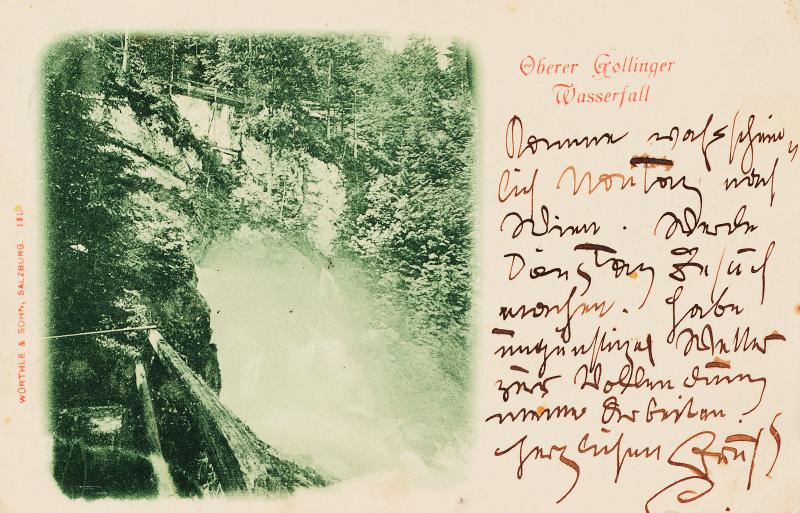 Oberer Gollinger
Wasserfall
Komme wahrschein„
lich Montag nach
Wien. Werde
Dienstag Besuch
machen. Habe
ungünstiges Wetter
zur Vollendung
meiner Arbeiten.
Herzlichen Gruß
WÜRTHLE & SOHN, SALZBURG.